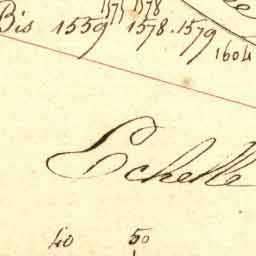 1575 1578
Bis 1559 1578.1579
1604
Echelle
40 50